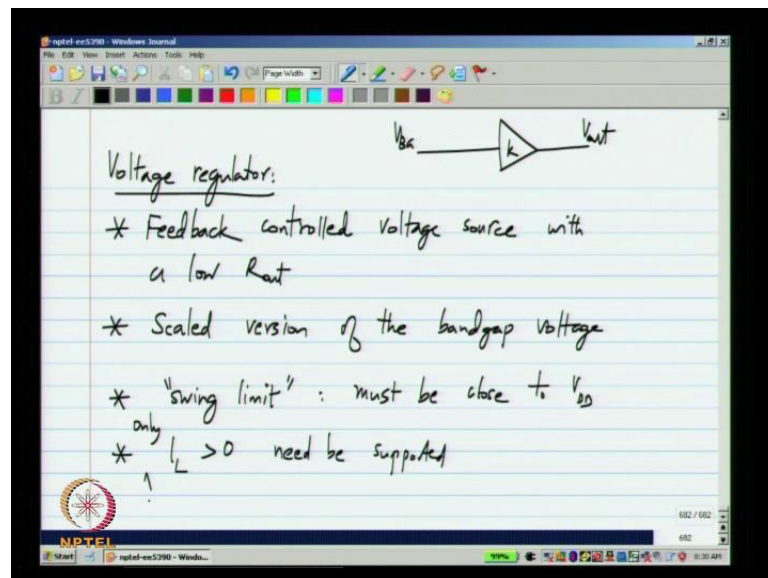 nptel-ee5390 - Windows Journal
File Edit View Insert Actions Tools Help
Page Width
B I
V_BG k V_out
Voltage regulator:
* Feedback controlled voltage source with
a low R_out
* Scaled version of the bandgap voltage
* "swing limit" : must be close to V_DD
only
* I_L > 0 need be supported
682 / 682
682
NPTEL
Start nptel-ee5390 - Windo... 99% 8:30 AM